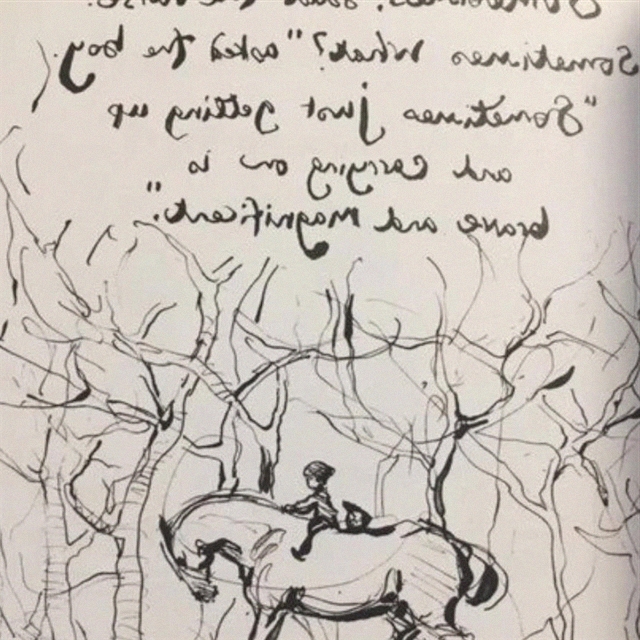 Sometimes," said the horse.
Sometimes What?" asked the boy.
"Sometimes just getting up
and carrying on is
brave and Magnificent."